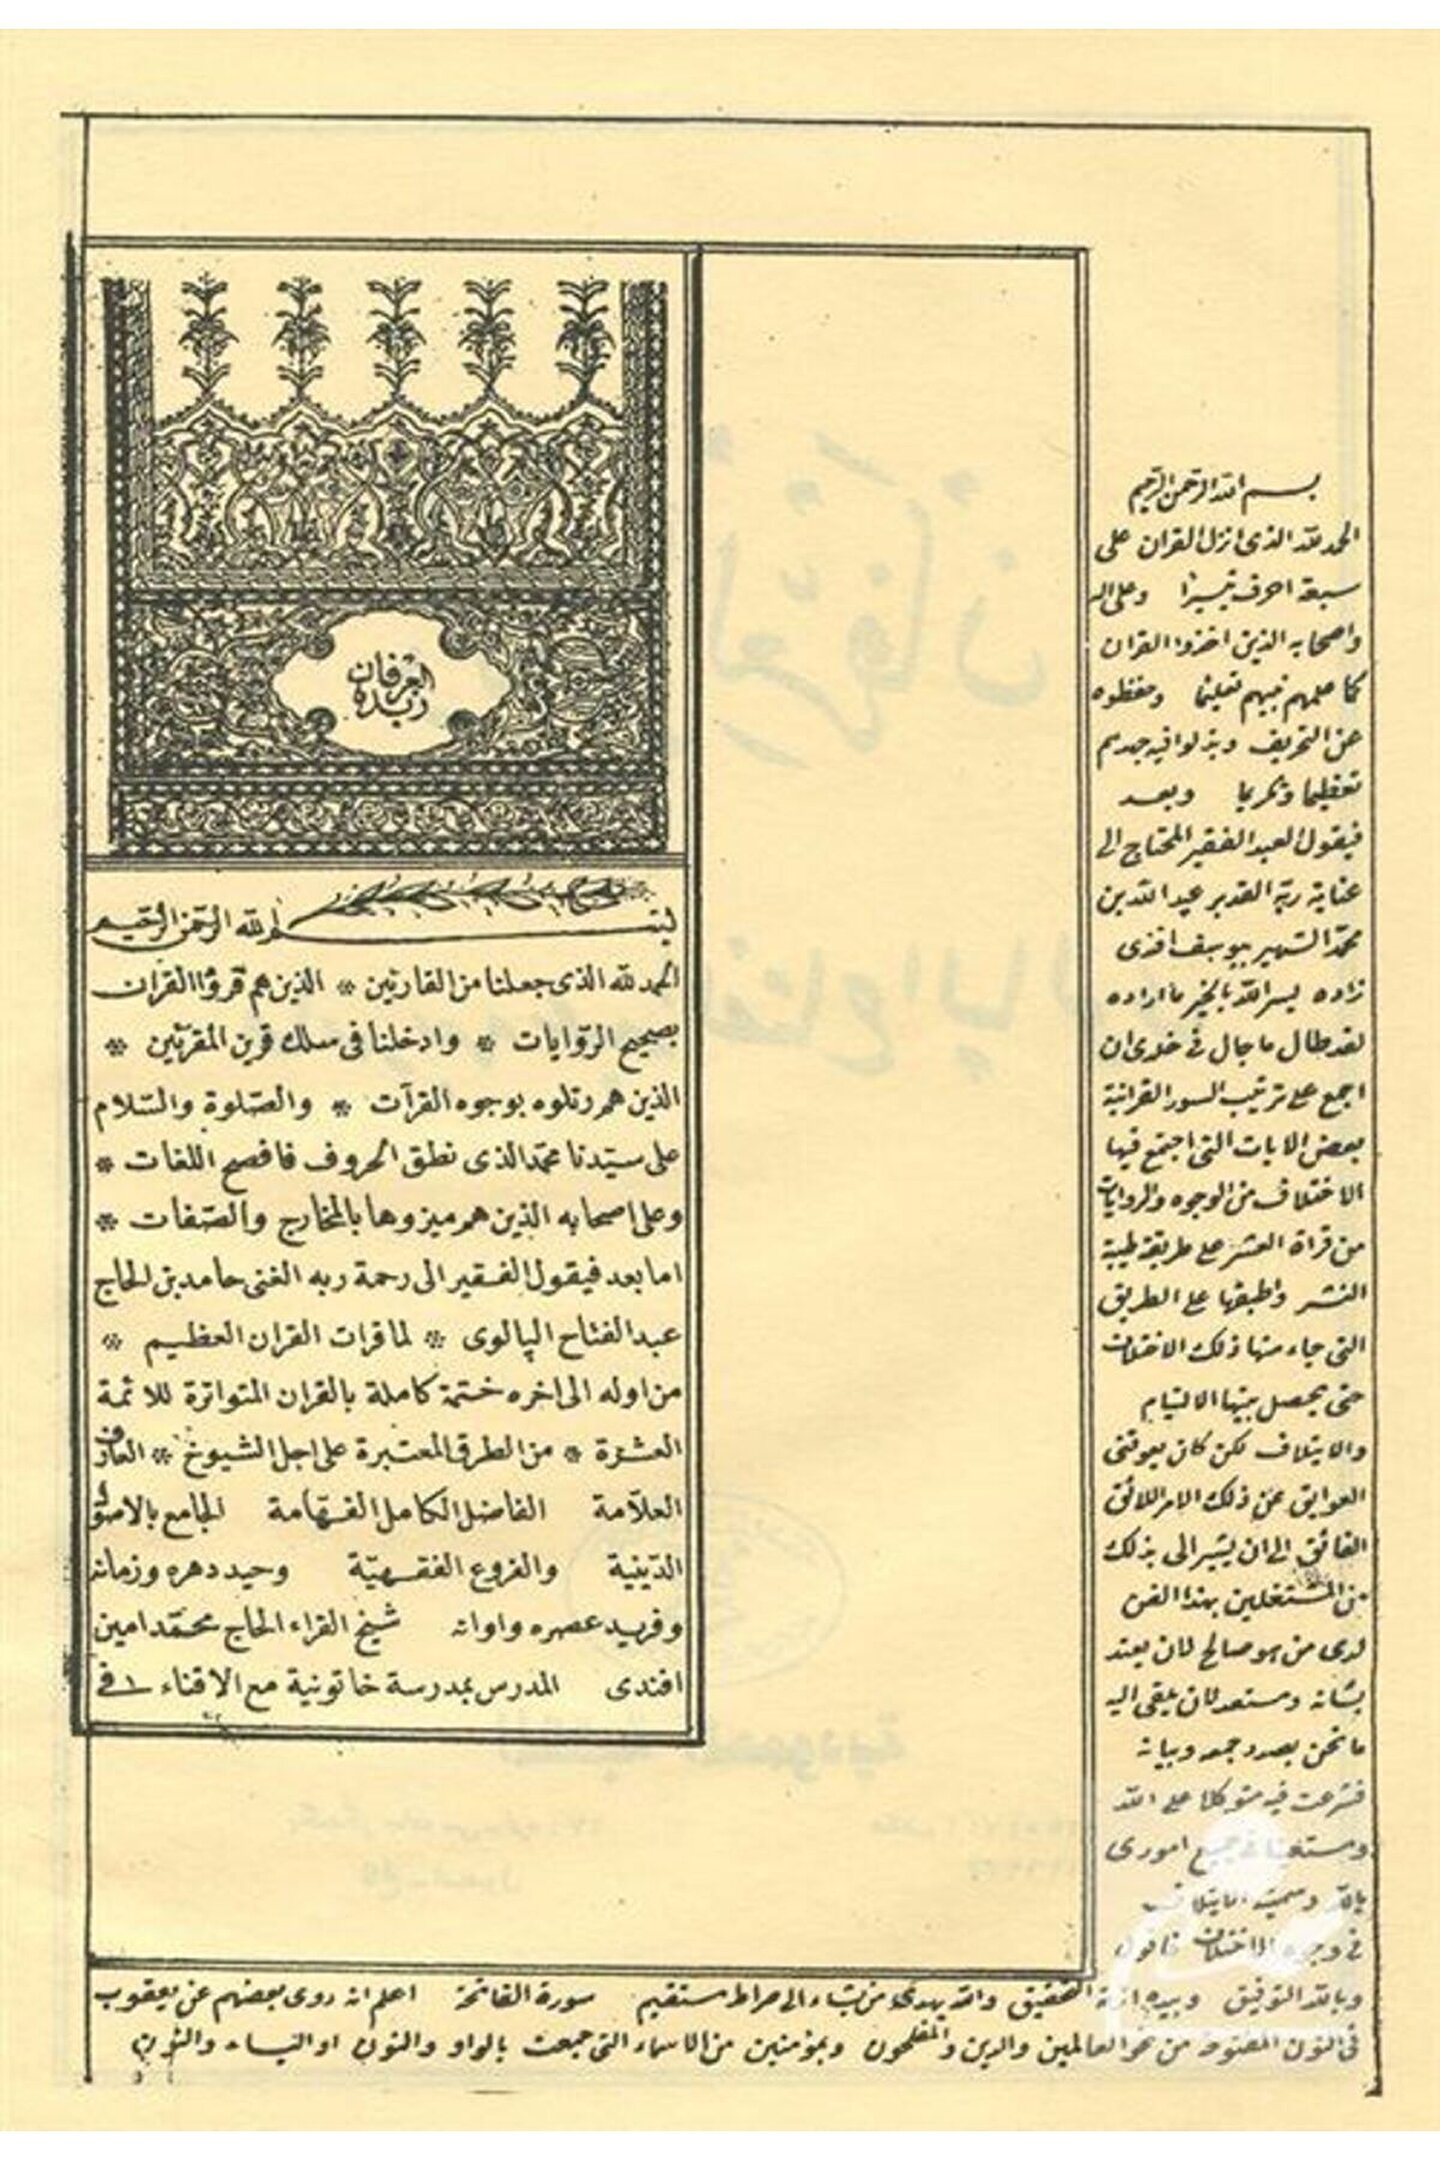 العرفان
زبدة
بسم الله الرحمن الرحيم
الحمد لله الذى جعلنا من القارئين * الذين هم قرؤا القرآن
بصحيح الروايات * وادخلنا فى مسلك قرين المقربين *
الذين هم رتلوه بوجوه القرآت * والصلوة والسلام
على سيدنا محمد الذى نطق الحروف فافصح اللغات *
وعلى اصحابه الذين هم ميزوها بالمخارج والصفات *
اما بعد فيقول الفقير الى رحمة ربه الغنى حامد بن الحاج
عبد الفتاح البالوى * لما قرات القران العظيم *
من اوله الى اخره ختمة كاملة بالقران المتواترة للائمة
العشرة * من الطرق المعتبرة على اجل الشيوخ * العارف
العلامة الفاضل الكامل الفهامة الجامع بالاصول
الدينية والفروع الفقهية وحيد دهره وزمانه
وفريد عصره واوانه شيخ القراء الحاج محمد امين
افندى المدرس بمدرسة خاتونية مع الافتاء فى
بسم الله الرحمن الرحيم
الحمد لله الذى انزل القران على
سبعة احرف تيسيرا وعلى اله
واصحابه الذين اخذوا القران
كما علمهم نبيهم تعليما وحفظوه
عن التحريف وبذلوا فيه جهدهم
تعظيما وتكريما وبعد
فيقول العبد الفقير المحتاج الى
عناية ربه القدير عبد الله بن
محمد الشهير بيوسف افندى
زاده يسر الله بالخير ما اراده
لقد طال ما جال فى خلدى ان
اجمع على ترتيب السور القرانية
بعض الايات التى اجتمع فيها
الاختلاف من الوجوه والروايات
من قراة العشر على طريقة طيبة
النشر واطبقها على الطريق
التى جاء منها ذلك الاختلاف
حتى يحصل بينها الالتيام
والايتلاف لكن كان يعوقنى
العوايق عن ذلك الامر اللائق
الفائق الى ان يشير الى بذلك
من المشتغلين بهذا الفن
لدى من هو صالح لان يعتد
بشانه ومستعد لان يلقى اليه
ما نحن بصدد جمعه وبيانه
فشرعت فيه متوكلا على الله
ومستعينا فى جميع امورى
بالله وسميته الايتلاف
فى وجوه الاختلاف فاقول
وبالله التوفيق وبيده ازمة التحقيق والله يهدى من يشاء الى صراط مستقيم سورة الفاتحة اعلم انه روى بعضهم عن يعقوب
فى النون المفتوحة من نحو العالمين والدين والمفلحون وبمؤمنين من الاسماء التى جمعت بالواو والنون او الياء والنون